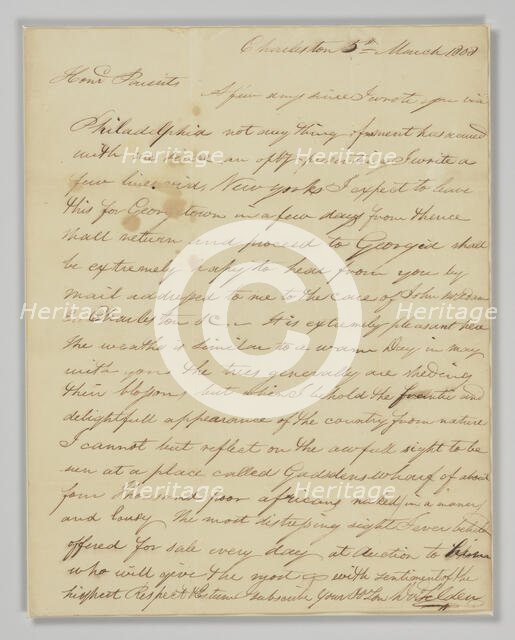 Charleston 5th March 1808
Hond Parents
A few days since I wrote you via
Philadelphia not any thing of moment has occured
with me since an oppy presenting I write a
few lines via New York I expect to leave
this for Georgetown in a few days from thence
shall return and proceed to Georgia shall
be extremely happy to hear from you by
mail addressed to me to the care of John
Charleston It is extremely pleasant here
the weather is similar to a warm Day in may
with you the trees generally are sheding
their blossoms but when I behold the and
delightfull appearance of the country from nature
I cannot but reflect on the awfull sight to be
seen at a place called Gadsdens wharf of about
four poor africans naked in a manner
and lousy the most distressing sight I ever beheld
offered for sale every day at Auction to
who will give the most with sentiment of the
highest Respect & Esteem I subscribe your Son
Heritage
Heritage
Heritage
Heritage
Heritage
Heritage
Heritage
Heritage
©